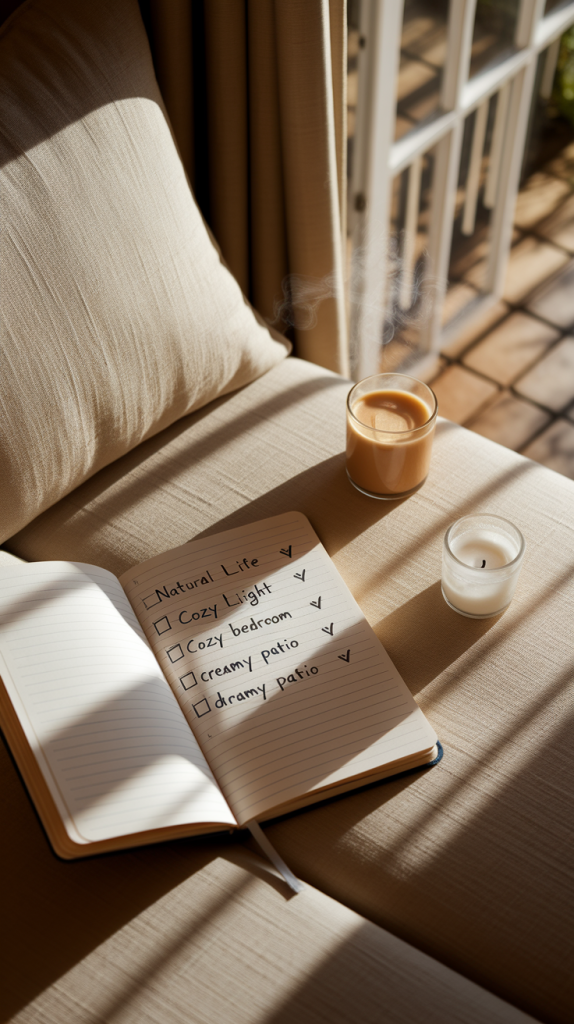 ☐ Natural Life ✓
☐ Cozy Light ✓
☐ Cozy bedroom ✓
☐ creamy patio ✓
☐ dramy patio ✓